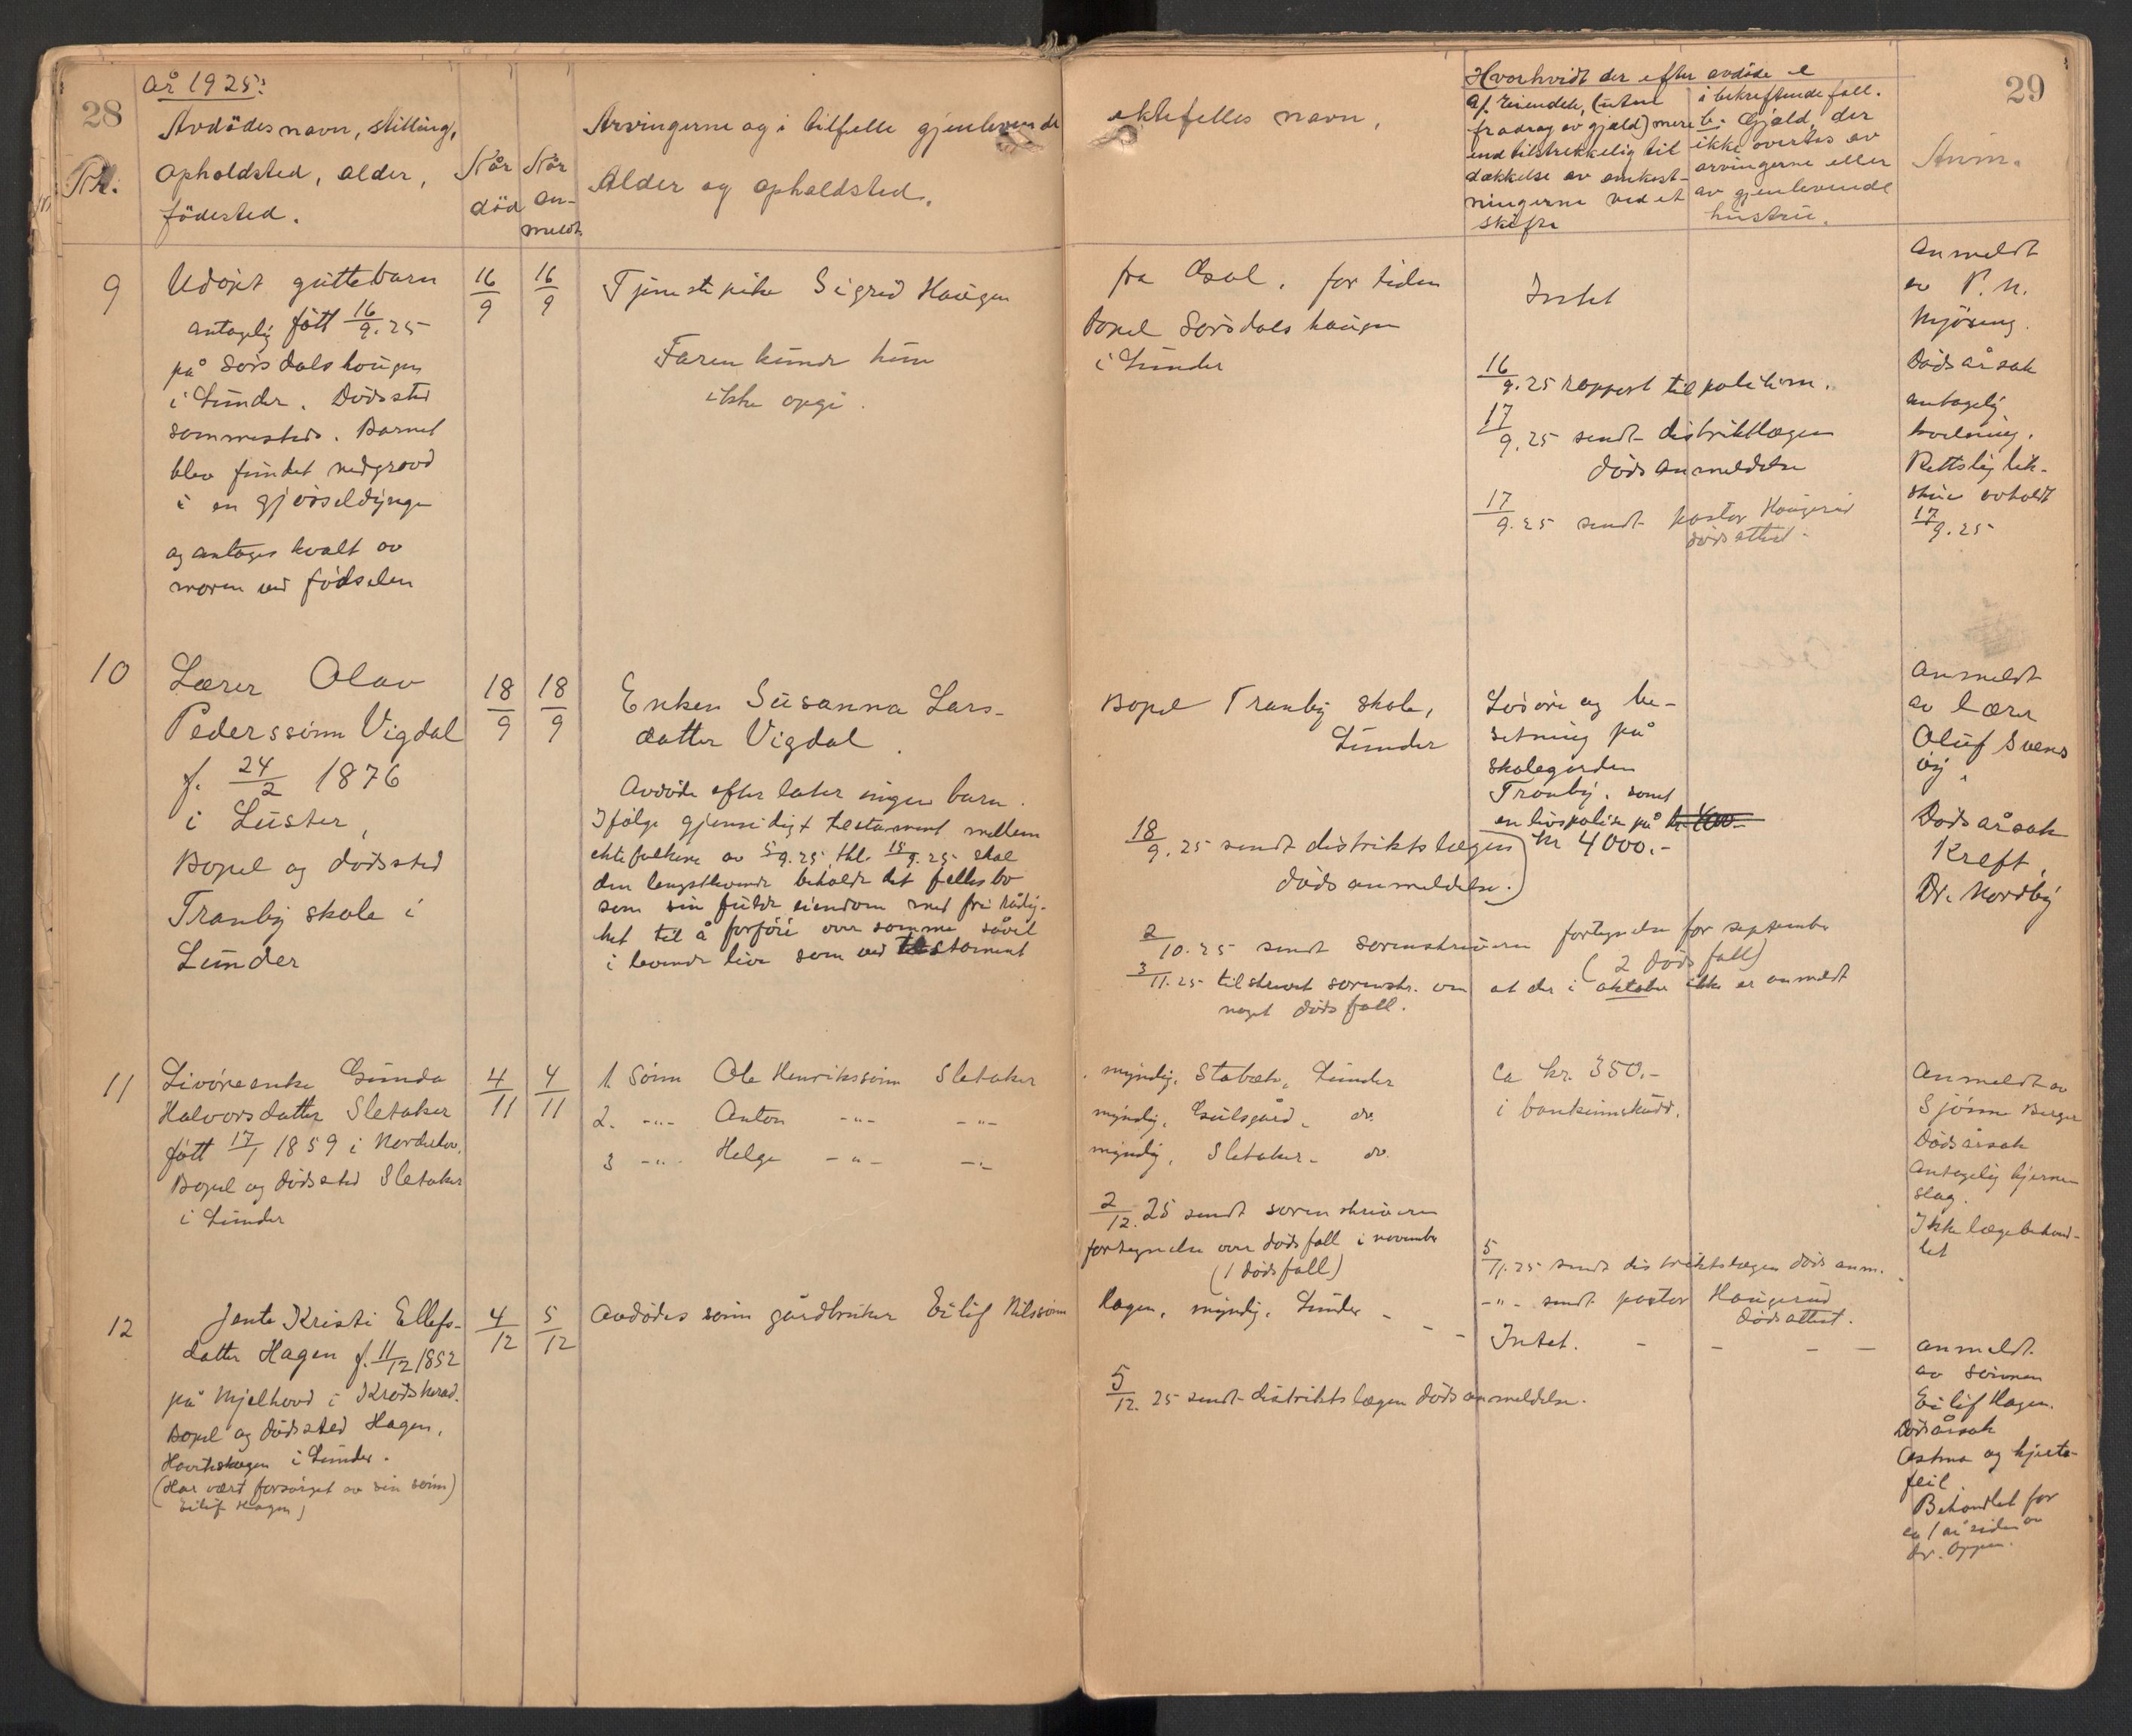 28
År 1925:
Nr.
Avdødes navn, stilling,
opholdsted, alder,
fødested.
Når
død
Når
an-
meldt
Arvingerne og i tilfelle gjenlevende
Alder og opholdsted.
ektefelles navn,
Hvorhvidt der efter avdøde e
a/. eiendele, (uten
fradrag av gjæld) mere
end tilstrekkelig til
dækkelse av omkost-
ningerne ved et
skifte
i bekreftende fall.
b. Gjæld, der
ikke overtas av
arvingerne eller
av gjenlevende
hustru.
29
Anm.
9
Udøpt guttebarn
antagelig født 16/9.25
på Sørsdalshaugen
i Lunder. Dødssted
sammesteds. Barnet
blev fundet nedgravd
i en gjødseldynge
og antages kvalt av
moren ved fødselen
16/9
16/9
Tjenestepike Sigrid Haugen
Faren kunde hun
ikke opgi.
fra Aal, for tiden
bopel Sørsdalshaugen
i Lunder
Intet
16/9.25 rapport til politiem.
17/9.25 sendt distriktlægen
dødsanmeldelse
17/9.25 sendt pastor Haugerud
dødsattest.
Anmeldt
av P. N.
Mjøseng.
Dødsårsak
antagelig
kvelning.
Rettslig lik-
skue avholdt
17/9.25
10
Lærer Olav
Pederssønn Vigdal
f. 24/2 1876
i Luster,
Bopel og dødssted
Tranby skole i
Lunder
18/9
18/9
Enken Susanna Lars-
datter Vigdal.
Avdøde efterlater ingen barn.
Ifølge gjensidigt testament mellem
ektefolkene av 5/9.25 thl. 15/9.25 skal
den lengstlevende beholde det felles bo
som sin fulde eiendom med fri rådig-
het til å forføie over samme såvel
i levende live som ved testament
Bopel Tranby skole,
Lunder
18/9.25 sendt distriktslægen
dødsanmeldelse.
2/10.25 sendt sorenskriveren fortegnelse for september
(2 dødsfall)
3/11.25 tilskrevet sorenskr. om at der i oktober ikke er anmeldt
noget dødsfall.
Løsøre og be-
setning på
skolegarden
Tranby, samt
en livspolise på kr. 400.-
kr 4000.-
Anmeldt
av lærer
Oluf Svens
øy.
Dødsårsak
Kreft,
Dr. Nordby
11
Livøreenke Gunda
Halvorsdatter Sletaker
født 17/1 1859 i Norderhov.
Bopel og dødssted Sletaker
i Lunder
4/11
4/11
1. Sønn Ole Henrikssønn Sletaker
2. -"- Anton -"- -"-
3 -"- Helge -"- -"-
myndig, Stabæk, Lunder
myndig, Gulsgård, do.
myndig, Sletaker, do.
2/12.25 sendt sorenskriveren
fortegnelse over dødsfall i november
(1 dødsfall)
ca kr. 350.-
i bankinnskudd.
5/11.25 sendt distriktslægen dødsanm.
-"- sendt pastor Haugerud
dødsattest.
Anmeldt av
Sjønne Berger
Dødsårsak
Antagelig hjerne
slag.
Ikke lægebehand-
let
12
Jente Kristi Ellefs-
datter Hagen f. 11/12 1852
på Mjelhovd i Krødsherad.
Bopel og dødssted Hagen,
i Lunder.
(Har vært forsørget av sin sønn)
Eilif Hagen)
4/12
5/12
Avdødes sønn gårdbruker Eilif Nilssønn
Hagen, myndig, Lunder - - -
Intet. - - - -
5/12.25 sendt distriktslægen dødsanmeldelse.
anmeldt
av sønnen
Eilif Hagen.
Dødsårsak
Astma og hjerte-
feil.
Behandlet for
ca 1 år siden av
dr. Oppen.